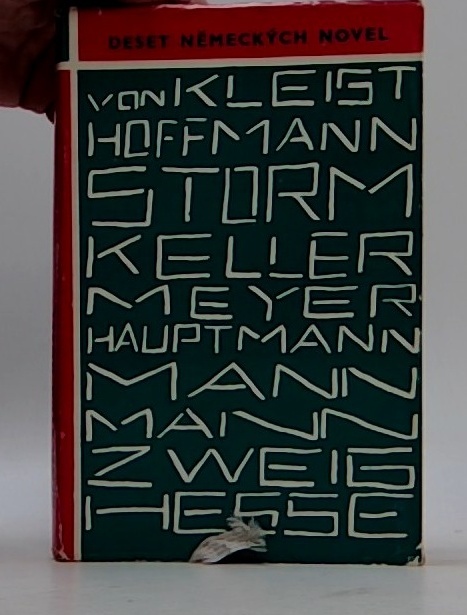 DESET NĚMECKÝCH NOVEL
VON KLEIST
HOFFMANN
STORM
KELLER
MEYER
HAUPTMANN
MANN
MANN
ZWEIG
HESSE